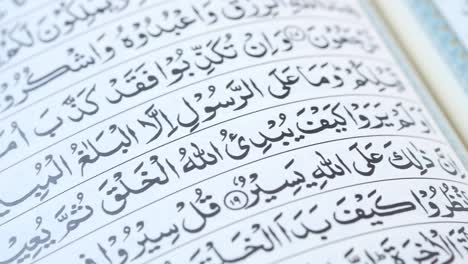 يَمْلِكُونَ
الرِّزْقَ وَاعْبُدُوهُ وَاشْكُرُوا
تُرْجَعُونَ ۝١٧ وَإِنْ تُكَذِّبُوا فَقَدْ كَذَّبَ
قَبْلِكُمْ وَمَا عَلَى الرَّسُولِ إِلَّا الْبَلَٰغُ الْمُبِينُ
أَوَلَمْ يَرَوْا كَيْفَ يُبْدِئُ اللَّهُ الْخَلْقَ ثُمَّ
إِنَّ ذَٰلِكَ عَلَى اللَّهِ يَسِيرٌ ۝١٩ قُلْ سِيرُوا
فَانْظُرُوا كَيْفَ بَدَأَ الْخَلْقَ
الْآخِرَةَ